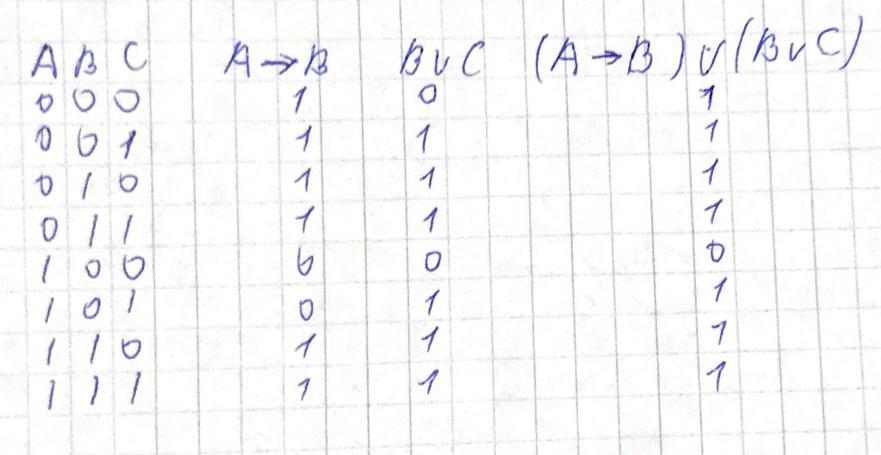 A B C A → B B ∨ C (A → B) ∨ (B ∨ C)
0 0 0 1 0 1
0 0 1 1 1 1
0 1 0 1 1 1
0 1 1 1 1 1
1 0 0 0 0 0
1 0 1 0 1 1
1 1 0 1 1 1
1 1 1 1 1 1